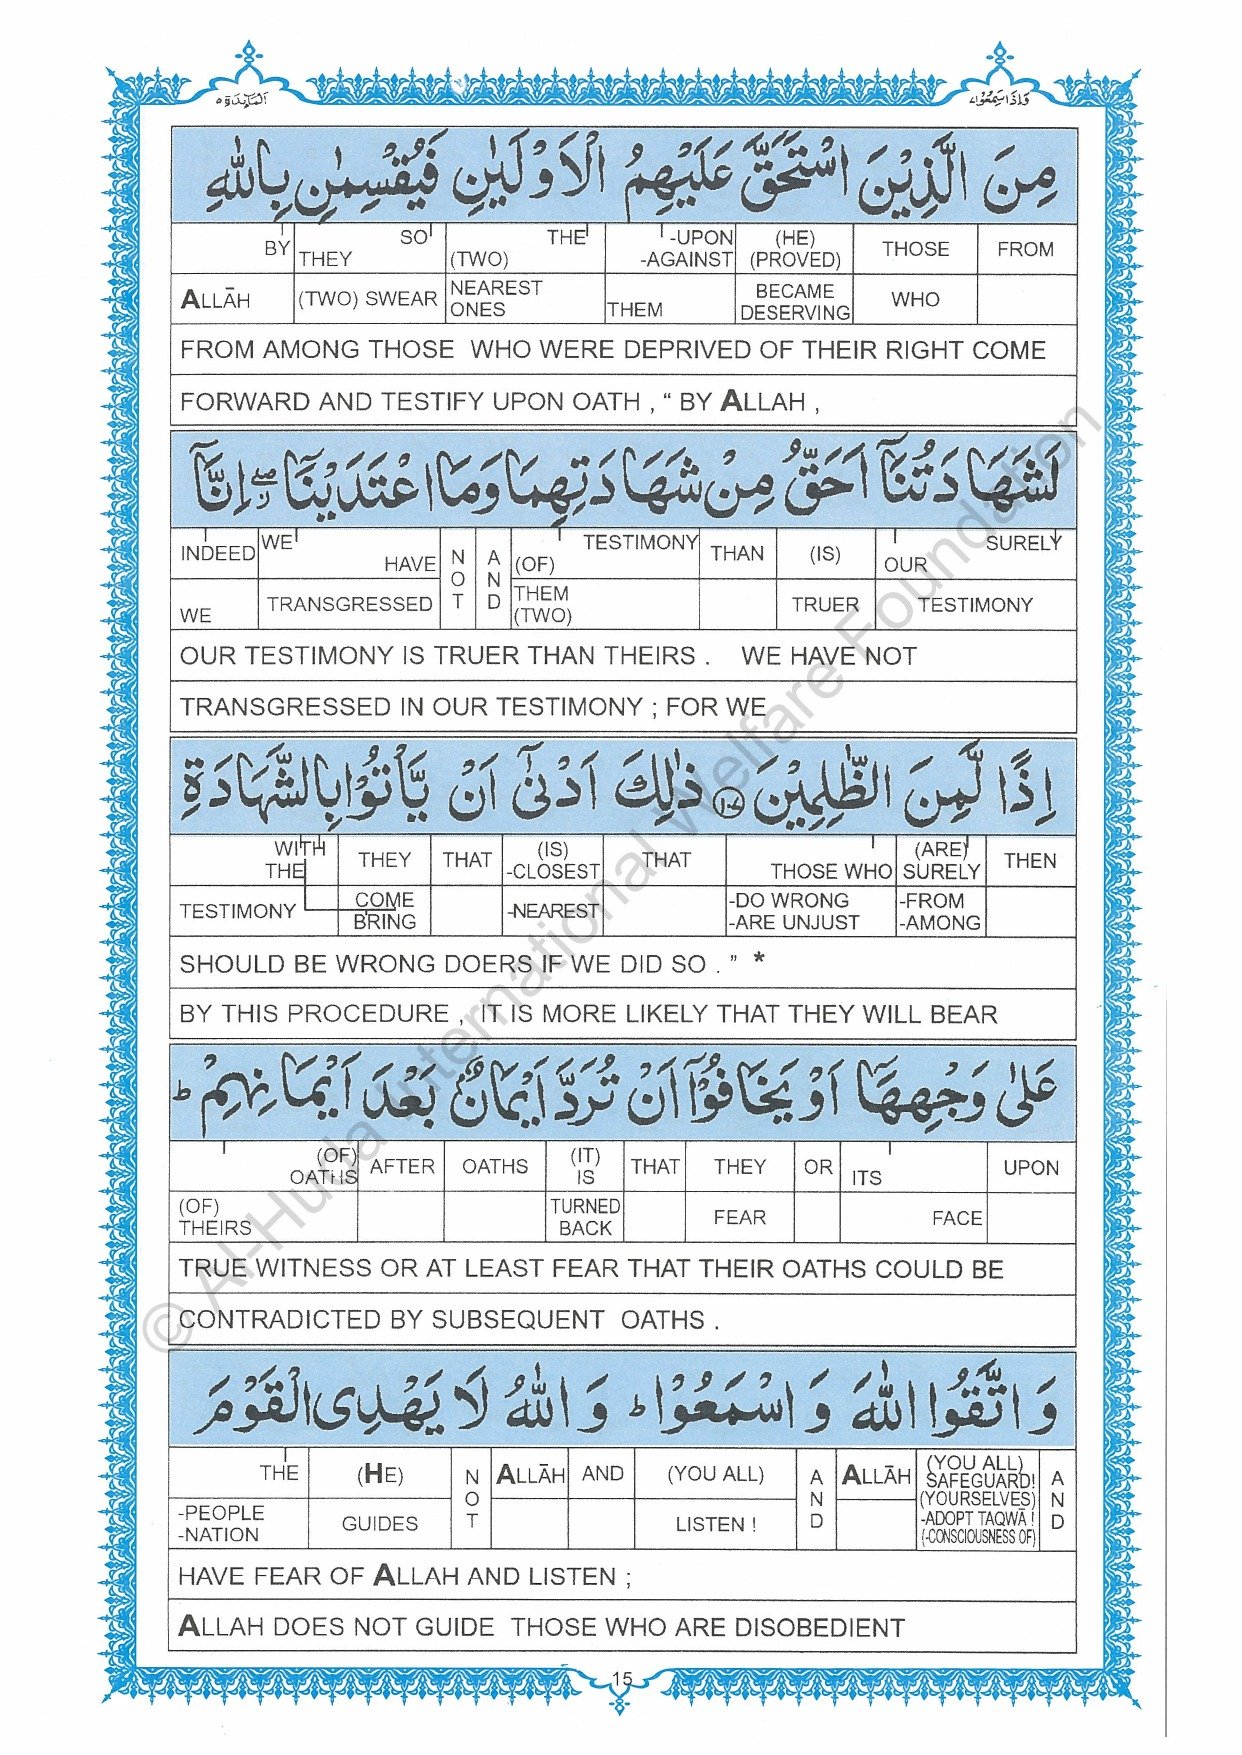 المآئدة ۵
واذا سمعوا ۷
مِنَ الَّذِيْنَ اسْتَحَقَّ عَلَيْهِمُ الْاَوْلَيٰنِ فَيُقْسِمٰنِ بِاللّٰهِ
BY SO THE -UPON (HE) THOSE FROM
THEY (TWO) -AGAINST (PROVED)
ALLĀH (TWO) SWEAR NEAREST ONES THEM BECAME DESERVING WHO
FROM AMONG THOSE WHO WERE DEPRIVED OF THEIR RIGHT COME
FORWARD AND TESTIFY UPON OATH , “ BY ALLAH ,
لَشَهَادَتُنَآ اَحَقُّ مِنْ شَهَادَتِهِمَا وَمَا اعْتَدَيْنَآ ۖ اِنَّآ
INDEED WE HAVE NOT AND (OF) TESTIMONY THAN (IS) OUR SURELY
WE TRANSGRESSED THEM (TWO) TRUER TESTIMONY
OUR TESTIMONY IS TRUER THAN THEIRS . WE HAVE NOT
TRANSGRESSED IN OUR TESTIMONY ; FOR WE
اِذًا لَّمِنَ الظّٰلِمِيْنَ ۝١٠٧ ذٰلِكَ اَدْنٰٓى اَنْ يَّاْتُوْا بِالشَّهَادَةِ
WITH THE THEY THAT (IS) -CLOSEST THAT THOSE WHO (ARE) SURELY THEN
TESTIMONY COME BRING -NEAREST -DO WRONG -ARE UNJUST -FROM -AMONG
SHOULD BE WRONG DOERS IF WE DID SO . ” *
BY THIS PROCEDURE , IT IS MORE LIKELY THAT THEY WILL BEAR
عَلٰى وَجْهِهَآ اَوْ يَخَافُوْٓا اَنْ تُرَدَّ اَيْمَانٌۢ بَعْدَ اَيْمَانِهِمْ ؕ
(OF) OATHS AFTER OATHS (IT) IS THAT THEY OR ITS UPON
(OF) THEIRS TURNED BACK FEAR FACE
TRUE WITNESS OR AT LEAST FEAR THAT THEIR OATHS COULD BE
CONTRADICTED BY SUBSEQUENT OATHS .
وَاتَّقُوا اللّٰهَ وَاسْمَعُوْا ؕ وَاللّٰهُ لَا يَهْدِى الْقَوْمَ
THE (HE) NOT ALLĀH AND (YOU ALL) AND ALLĀH (YOU ALL) SAFEGUARD! AND
-PEOPLE -NATION GUIDES LISTEN ! (YOURSELVES) -ADOPT TAQWĀ ! (-CONSCIOUSNESS OF)
HAVE FEAR OF ALLAH AND LISTEN ;
ALLAH DOES NOT GUIDE THOSE WHO ARE DISOBEDIENT
15
© Al-Huda International Welfare Foundation